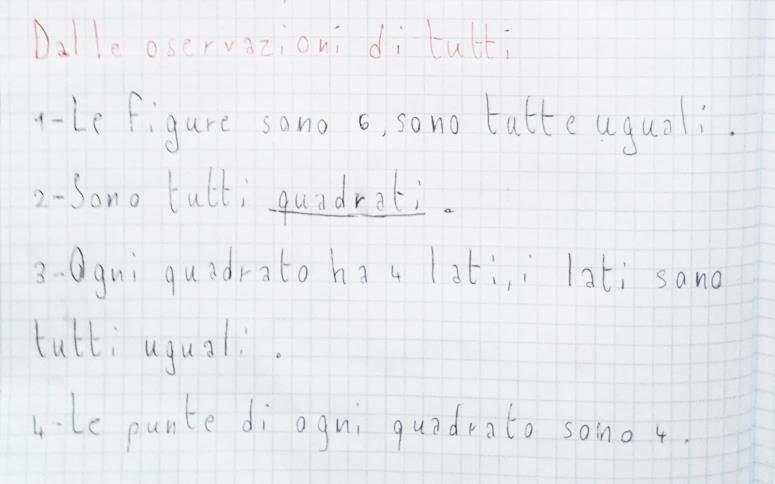 Dalle oservazioni di tutti
1-Le figure sono 6, sono tutte uguali.
2-Sono tutti quadrati.
3-Ogni quadrato ha 4 lati, i lati sono
tutti uguali.
4-Le punte di ogni quadrato sono 4.